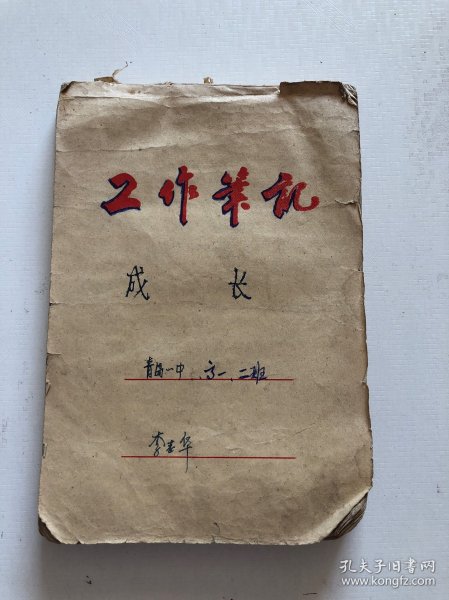 工作笔记
成 长
青岛一中、高一、二班
李志华
孔夫子旧书网
www.kongfz.com